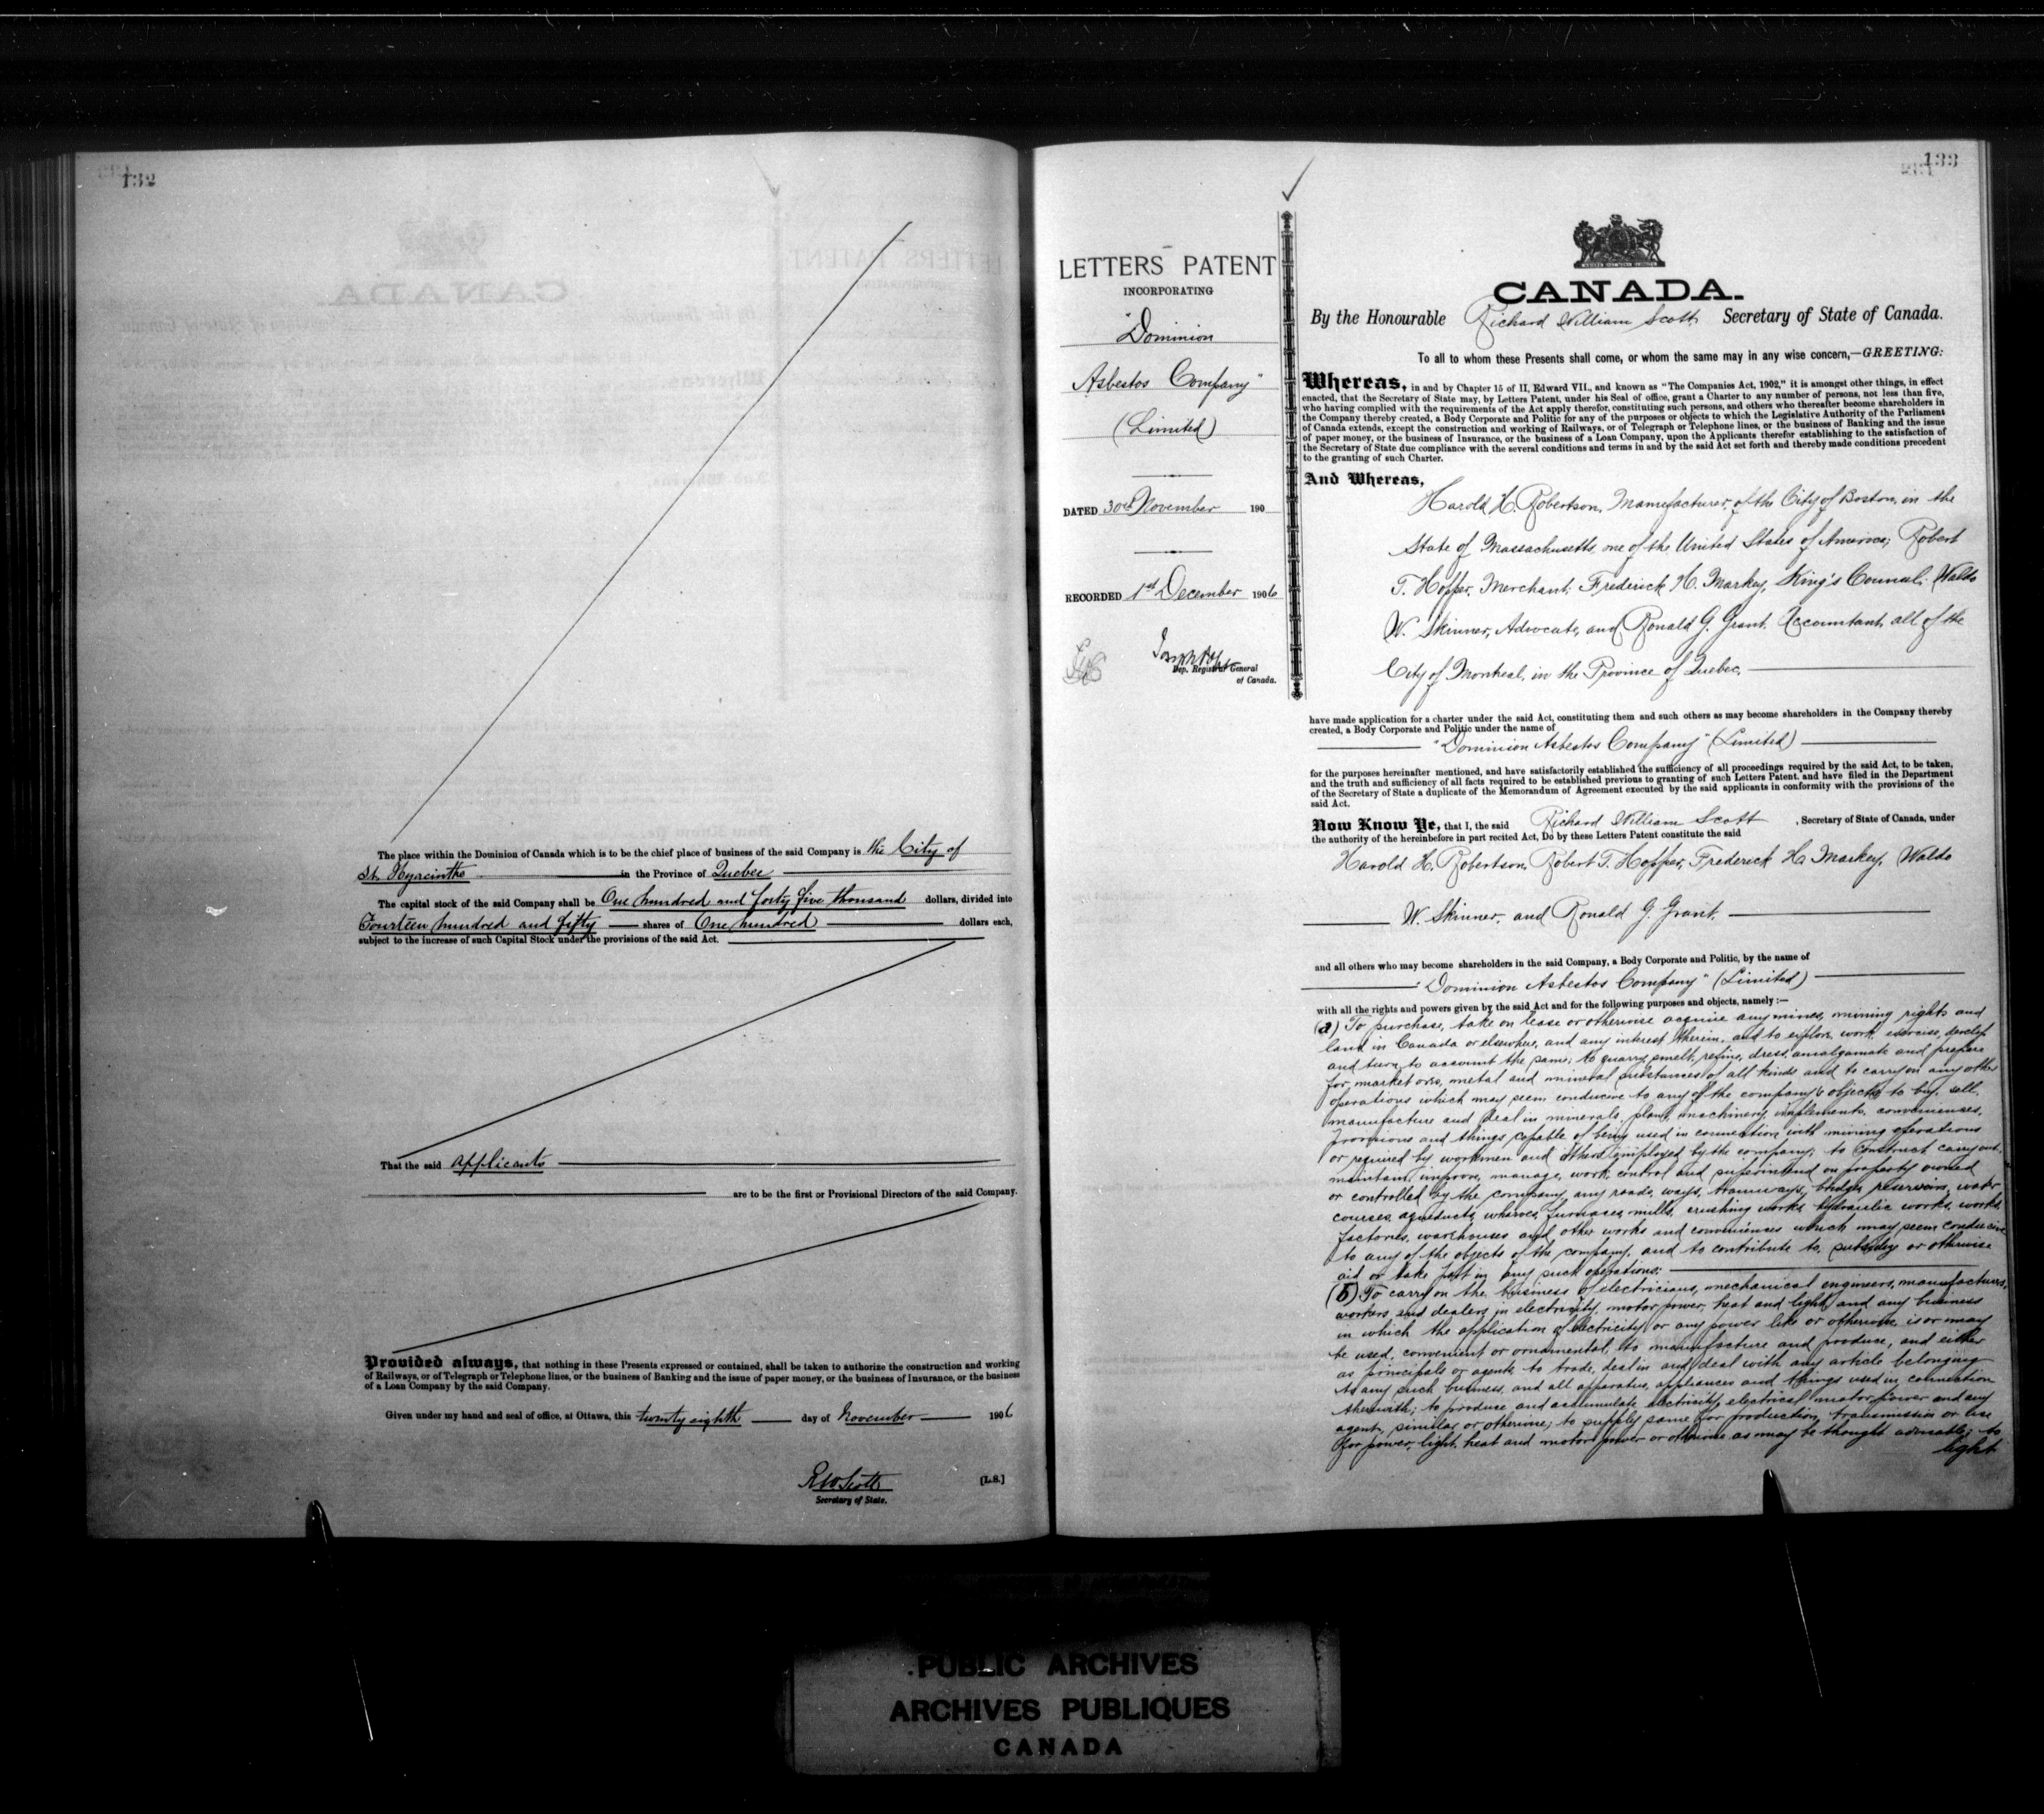 132
The place within the Dominion of Canada which is to be the chief place of business of the said Company is the City of
St. Hyacinthe in the Province of Quebec
The capital stock of the said Company shall be One hundred and forty five thousand dollars, divided into
Fourteen hundred and fifty shares of One hundred dollars each,
subject to the increase of such Capital Stock under the provisions of the said Act.
That the said applicants
are to be the first or Provisional Directors of the said Company.
Provided always, that nothing in these Presents expressed or contained, shall be taken to authorize the construction and working
of Railways, or of Telegraph or Telephone lines, or the business of Banking and the issue of paper money, or the business of Insurance, or the business
of a Loan Company by the said Company.
Given under my hand and seal of office, at Ottawa, this twenty eighth day of November 1906
RW Scott [L.S.]
Secretary of State.
133
LETTERS PATENT
INCORPORATING
"Dominion
Asbestos Company"
(Limited)
DATED 30th November 190
RECORDED 1st December 1906
Dep. Registrar General
of Canada.
CANADA.
By the Honourable Richard William Scott Secretary of State of Canada.
To all to whom these Presents shall come, or whom the same may in any wise concern,—GREETING:
Whereas, in and by Chapter 15 of II, Edward VII., and known as "The Companies Act, 1902," it is amongst other things, in effect
enacted, that the Secretary of State may, by Letters Patent, under his Seal of office, grant a Charter to any number of persons, not less than five,
who having complied with the requirements of the Act apply therefor, constituting such persons, and others who thereafter become shareholders in
the Company thereby created, a Body Corporate and Politic for any of the purposes or objects to which the Legislative Authority of the Parliament
of Canada extends, except the construction and working of Railways, or of Telegraph or Telephone lines, or the business of Banking and the issue
of paper money, or the business of Insurance, or the business of a Loan Company, upon the Applicants therefor establishing to the satisfaction of
the Secretary of State due compliance with the several conditions and terms in and by the said Act set forth and thereby made conditions precedent
to the granting of such Charter.
And Whereas,
Harold H. Robertson, Manufacturer, of the City of Boston, in the
State of Massachusetts, one of the United States of America; Robert
T. Hopper, Merchant; Frederick H. Markey, King's Counsel; Waldo
W. Skinner, Advocate, and Ronald G. Grant, Accountant, all of the
City of Montreal, in the Province of Quebec,
have made application for a charter under the said Act, constituting them and such others as may become shareholders in the Company thereby
created, a Body Corporate and Politic under the name of
"Dominion Asbestos Company" (Limited)
for the purposes hereinafter mentioned, and have satisfactorily established the sufficiency of all proceedings required by the said Act, to be taken,
and the truth and sufficiency of all facts required to be established previous to granting of such Letters Patent, and have filed in the Department
of the Secretary of State a duplicate of the Memorandum of Agreement executed by the said applicants in conformity with the provisions of the
said Act.
Now Know Ye, that I, the said Richard William Scott, Secretary of State of Canada, under
the authority of the hereinbefore in part recited Act, Do by these Letters Patent constitute the said
Harold H. Robertson, Robert T. Hopper, Frederick H. Markey, Waldo
W. Skinner, and Ronald G. Grant,
and all others who may become shareholders in the said Company, a Body Corporate and Politic, by the name of
"Dominion Asbestos Company" (Limited)
with all the rights and powers given by the said Act and for the following purposes and objects, namely:—
(a) To purchase, take on lease or otherwise acquire any mines, mining rights and
land in Canada or elsewhere, and any interest therein, and to explore, work, exercise, develop
and turn to account the same; to quarry, smelt, refine, dress, amalgamate and prepare
for market ores, metal and mineral substances of all kinds and to carry on any other
operations which may seem conducive to any of the company's objects; to buy, sell,
manufacture and deal in minerals, plant, machinery, implements, conveniences,
provisions and things capable of being used in connection with mining operations
or required by workmen and others employed by the company; to construct, carry out,
maintain, improve, manage, work, control and superintend on property owned
or controlled by the company any roads, ways, tramways, bridges, reservoirs, water
courses, aqueducts, wharves, furnaces, mills, crushing works, hydraulic works, works,
factories, warehouses and other works and conveniences which may seem conducive
to any of the objects of the company, and to contribute to, subsidize or otherwise
aid or take part in any such operations;
(b) To carry on the business of electricians, mechanical engineers, manufacturers,
workers and dealers in electricity, motor power, heat and light, and any business
in which the application of electricity or any power like or otherwise is or may
be used, convenient or ornamental, to manufacture and produce, and either
as principals or agents to trade, deal in and deal with any article belonging
to any such business, and all apparatus, appliances and things used in connection
therewith; to produce and accumulate electricity, electrical motor power and any
agent, similar or otherwise; to supply same for production, transmission or use
for power, light, heat and motor power or otherwise as may be thought advisable; to
light
PUBLIC ARCHIVES
ARCHIVES PUBLIQUES
CANADA